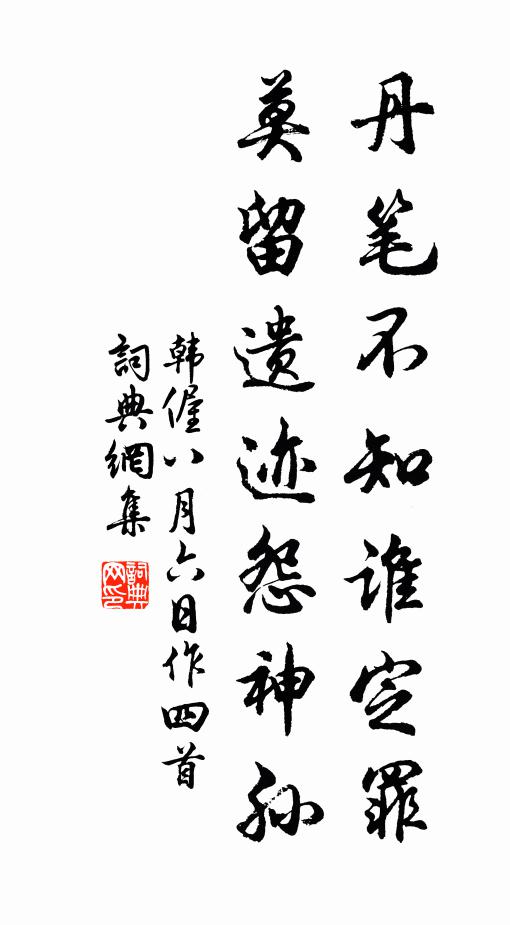 丹笔不知谁定罪
莫留遗迹怨神孙
韩偓八月六日作四首
詞典網集
詞典网印